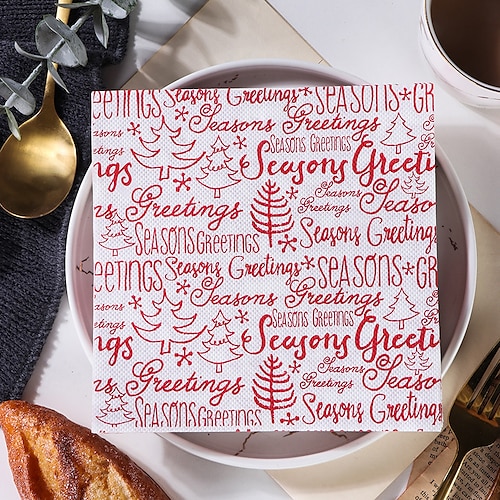 EETINGS Seasons Greetings SEASONS GR
Seasons Greetings
Seasons Greetings
Seasons Greeti
ngs
Seasons
Greetings
Seaso
Greetings
Seasons Greetings
Seasons Greetings
EETINGS Seasons Greetings SEASONS GR
Seasons Greetings
Seasons Greetings
Seasons Greeti
ngs
Seasons
Greetings
Seaso
Greetings
Seasons Greetings
Seasons Greetings